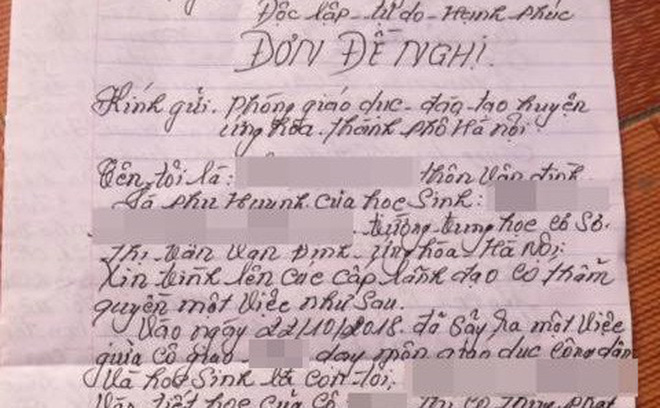 Độc lập - tự do - Hạnh phúc
ĐƠN ĐỀ NGHỊ.
Kính gửi. phòng giáo dục - đào tạo huyện
ứng hòa. thành phố Hà nội
Tên tôi là: thôn Vân đình
Là phụ Huynh của học Sinh:
trường trung học cơ Sở.
Thị Trấn Vân Đình. ứng hòa - Hà Nội;
Xin trình lên các cấp lãnh đạo có thẩm
quyền một việc như sau.
Vào ngày 22/10/2018. đã Sảy ra một Việc
giữa cô giáo dạy môn giáo dục công dân
Và học Sinh là con tôi;
Vào tiết học của cô thì cô